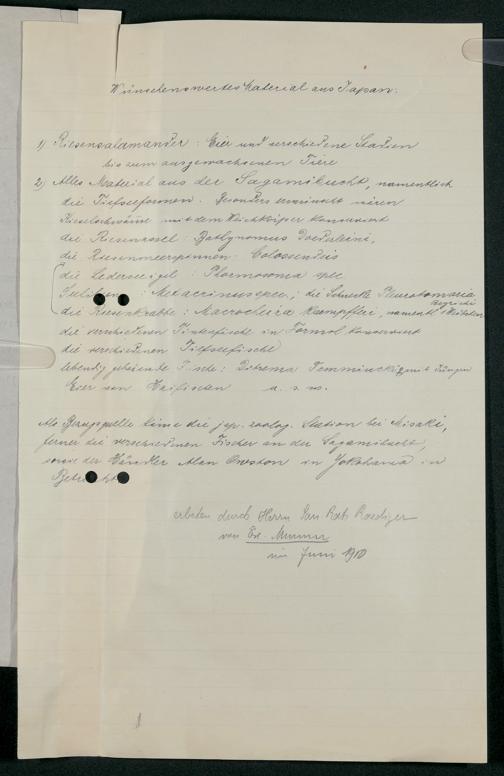 Wünschenswertes Material aus Japan.
1) Riesensalamander: Eier und verschiedene Stadien
bis zum ausgewachsenen Tiere
2) Alles Material aus der Sagamibucht, namentlich
die Tiefseeformen. Besonders erwünscht wären
Kieselschwämme mit dem Weichkörper konserviert
die Riesenassel: Bathynomus Doederleini,
die Riesenmeerspinnen: Colossendeis
die Lederseeigel: Phormosoma spec.
Seelilien: Metacrinus spec.; die Schnecke Pleurotomaria
Beyrichi
die Riesenkrabbe: Macrocheira Kaempferi, namentl.
die verschiedenen Tintenfische in Formol konserviert
die verschiedenen Tiefseefische
lebendig gebärende Fische: Ditrema Temmincki mit Jungen
Eier von Haifischen u. s. w.
Als Bezugsquelle käme die jap. zoolog. Station bei Misaki,
ferner die verschiedenen Fischer an der Sagamibucht,
sowie der Händler Alan Owston in Yokohama in
Betracht
erbeten durch Herrn Rat Roediger
von
im Juni 1910